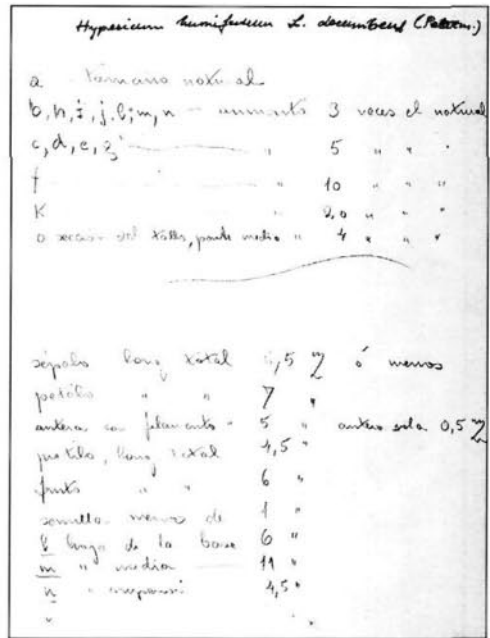 Hypericum humifusum L. decumbens (Peterm.)
a tamaño natural
b, h, i, j, l; m, n — aumento 3 veces el natural
c, d, e, g — " 5 " " "
f — " 10 " " "
K " 20 " " "
o sección del tallo, parte media " 4 " " "
sépalo long total 4,5 ó menos
petálo " " 7 "
antera con filamento " 5 " antera sola 0,5
long total 4,5 "
fruto " " 6 "
semilla menos de 1 "
hoja de la base 6 "
m " media 11 "
n " 4,5 "
"